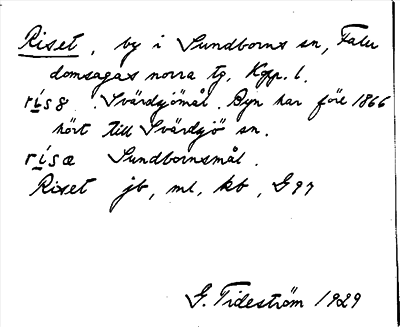 Riset, by i Sundborns sn, Falu
domsagas norra tg, Kopp. l.
rísꝫ. Svärdsjömål. Byn har före 1866
hört till Svärdsjö sn.
rísæ Sundbornsmål.
Riset jb, ml, kb, G 97
G. Tideström 1929